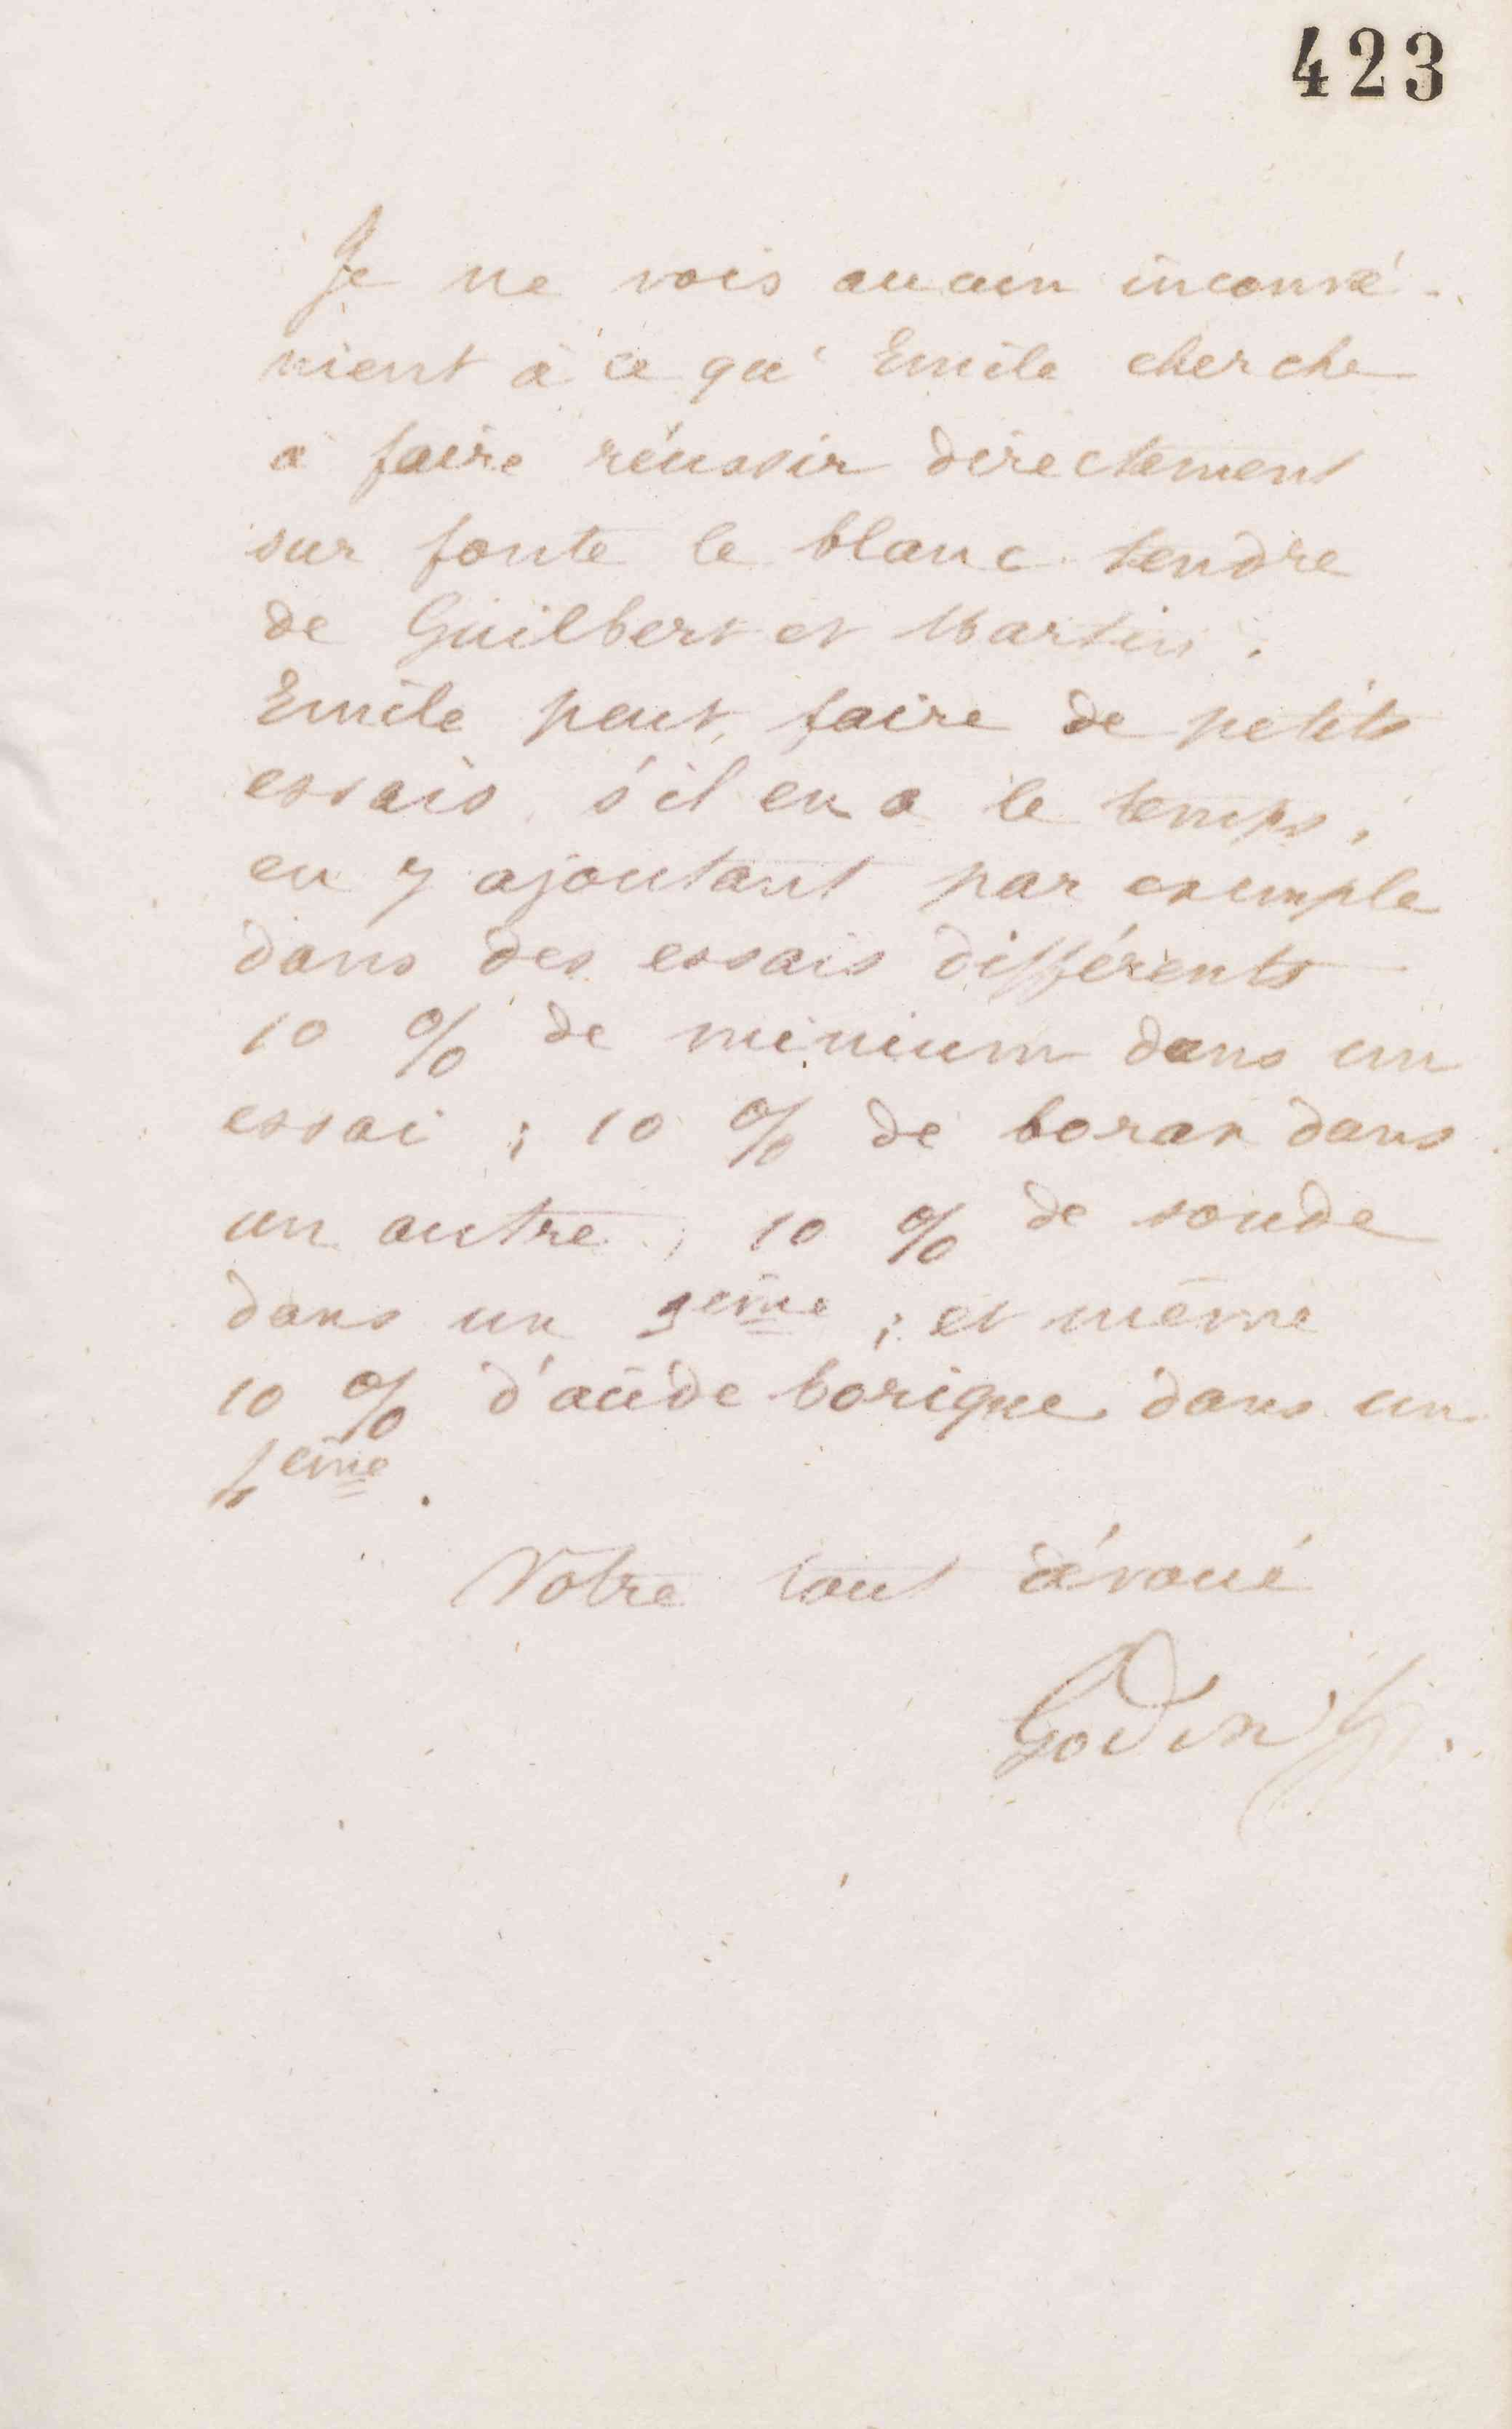 423
Je ne vois aucun inconvé-
nient à ce qu'Emile cherche
à faire réussir directement
sur fonte le blanc tendre
de Guilbert et Martin.
Emile peut faire de petits
essais, s'il en a le temps,
en y ajoutant par exemple
dans des essais différents
10 % de minium dans un
essai ; 10 % de borax dans
un autre ; 10 % de soude
dans un 3eme ; et même
10 % d'acide borique dans un
4eme.
Votre tout dévoué
Godin